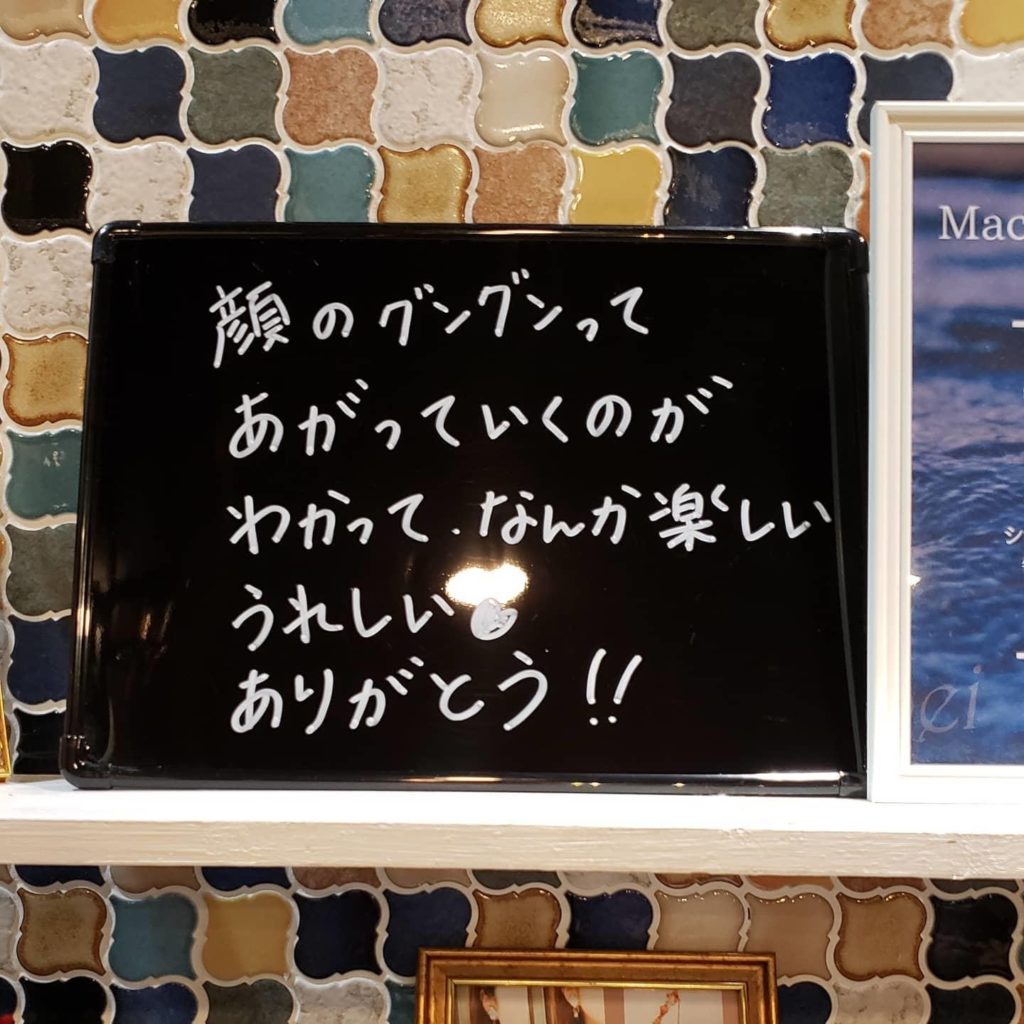 顔のグングンって
あがっていくのが
わかって、なんか楽しい
うれしい
ありがとう!!
Mac
シ
ei